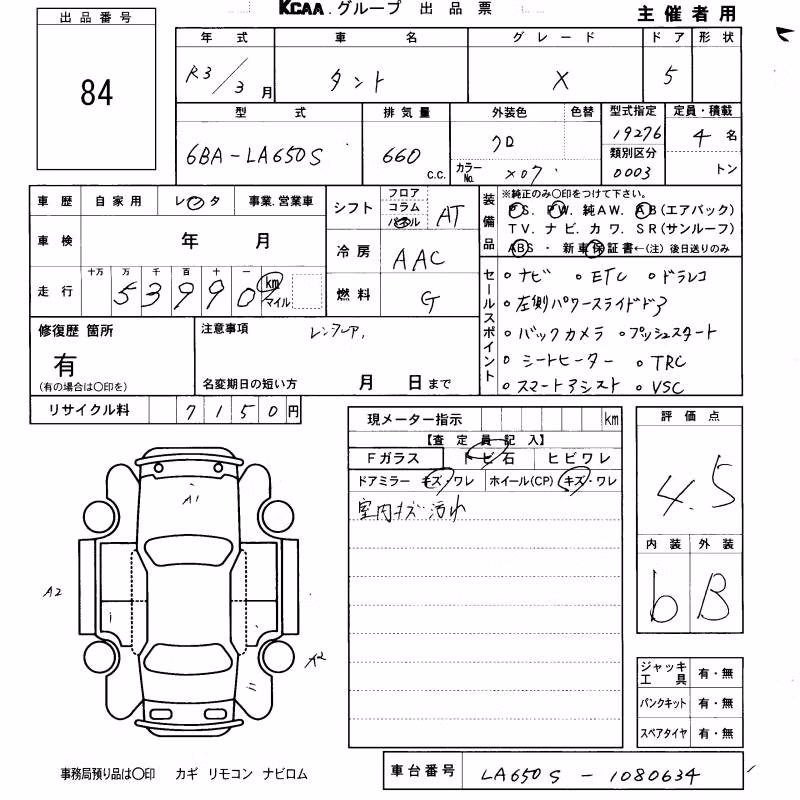 KCAA.グループ 出品票
主催者用
出品番号
84
年式 車名 グレード ドア 形状
R3/3月 タント X 5
型式 排気量 外装色 色替 型式指定 定員・積載
6BA-LA650S 660 C.C. クロ 19276 4名
カラーNo. X07 類別区分 0003 トン
車歴 自家用 レンタ 事業.営業車
シフト フロア コラム パネル AT
装備品 ※純正のみ○印をつけて下さい。
P.S. P.W. 純AW. AB(エアバック)
TV. ナビ. カワ. SR(サンルーフ)
ABS・新車保証書←(注)後日送りのみ
車検 年 月
冷房 AAC
走行 十万 万 千 百 十 一
53990 km マイル
燃料 G
セールスポイント
○ナビ ○ETC ○ドラレコ
○左側パワースライドドア
○バックカメラ ○プッシュスタート
○シートヒーター ○TRC
○スマートアシスト ○VSC
修復歴 箇所
有
(有の場合は○印を)
注意事項 レンタアップ,
名変期日の短い方 月 日まで
リサイクル料 7150円
現メーター指示 km
【査定員記入】
Fガラス トビ石 ヒビワレ
ドアミラー キズ・ワレ ホイール(CP) キズ・ワレ
室内キズ・汚れ
評価点
4.5
内装 外装
b B
A1
A2
A2
ジャッキ工具 有・無
パンクキット 有・無
スペアタイヤ 有・無
事務局預り品は○印 カギ リモコン ナビロム
車台番号 LA650S-1080634